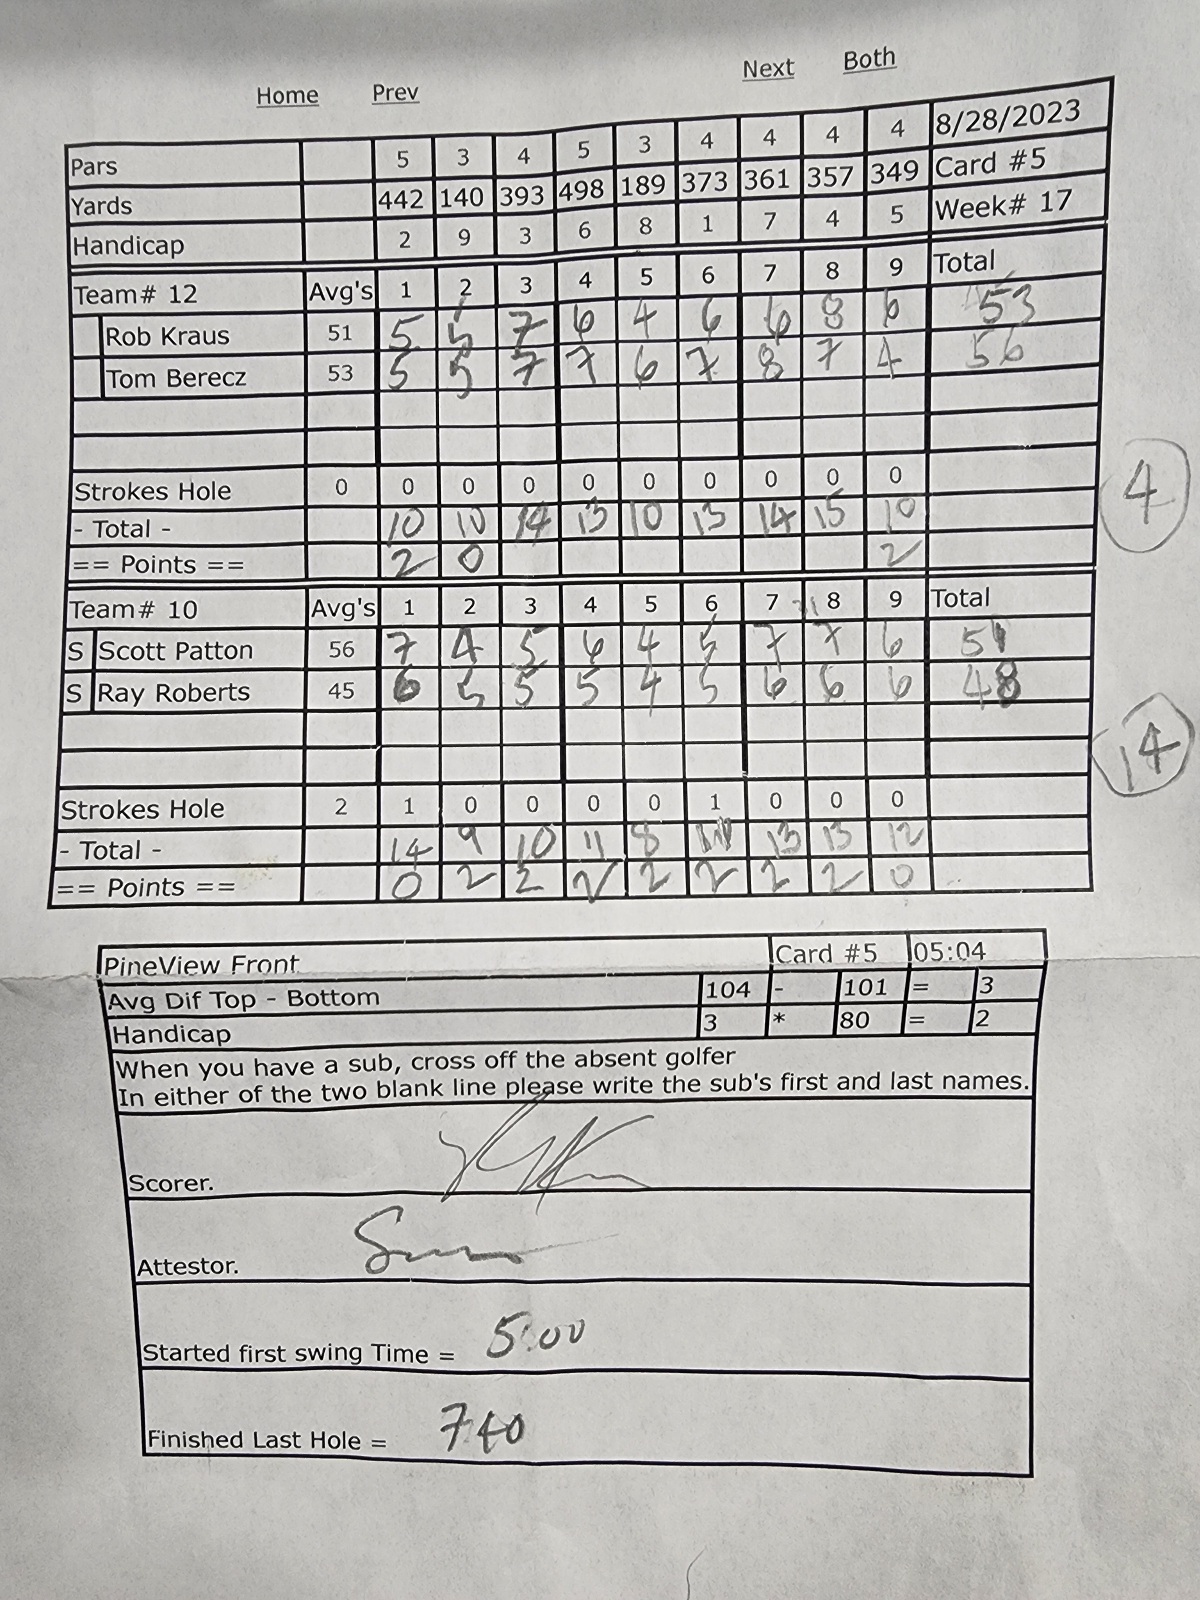 Home Prev Next Both
Pars 5 3 4 5 3 4 4 4 4 8/28/2023
Yards 442 140 393 498 189 373 361 357 349 Card #5
Handicap 2 9 3 6 8 1 7 4 5 Week# 17
Team# 12 Avg's 1 2 3 4 5 6 7 8 9 Total
Rob Kraus 51 5 5 7 6 4 6 6 8 6 53
Tom Berecz 53 5 5 7 7 6 7 8 7 4 56
Strokes Hole 0 0 0 0 0 0 0 0 0 0
- Total - 10 10 14 13 10 13 14 15 10
== Points == 2 0 2
4
Team# 10 Avg's 1 2 3 4 5 6 7 8 9 Total
S Scott Patton 56 7 4 5 6 4 5 7 7 6 51
S Ray Roberts 45 6 5 5 5 4 5 6 6 6 48
14
Strokes Hole 2 1 0 0 0 0 1 0 0 0
- Total - 14 9 10 11 8 13 13 12
== Points == 0 2 2 2 2 2 2 2 0
PineView Front Card #5 05:04
Avg Dif Top - Bottom 104 - 101 = 3
Handicap 3 * 80 = 2
When you have a sub, cross off the absent golfer
In either of the two blank line please write the sub's first and last names.
Scorer.
Attestor.
Started first swing Time = 5:00
Finished Last Hole = 740